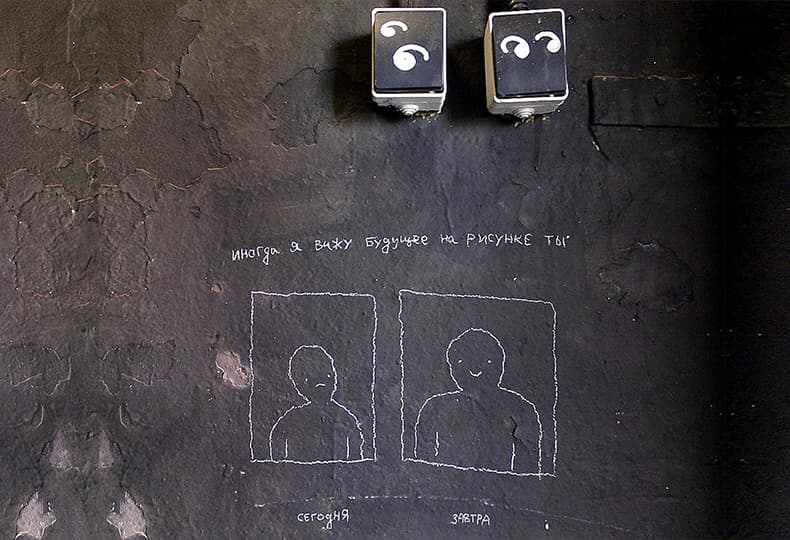 иногда я вижу будущее на рисунке ты
сегодня завтра